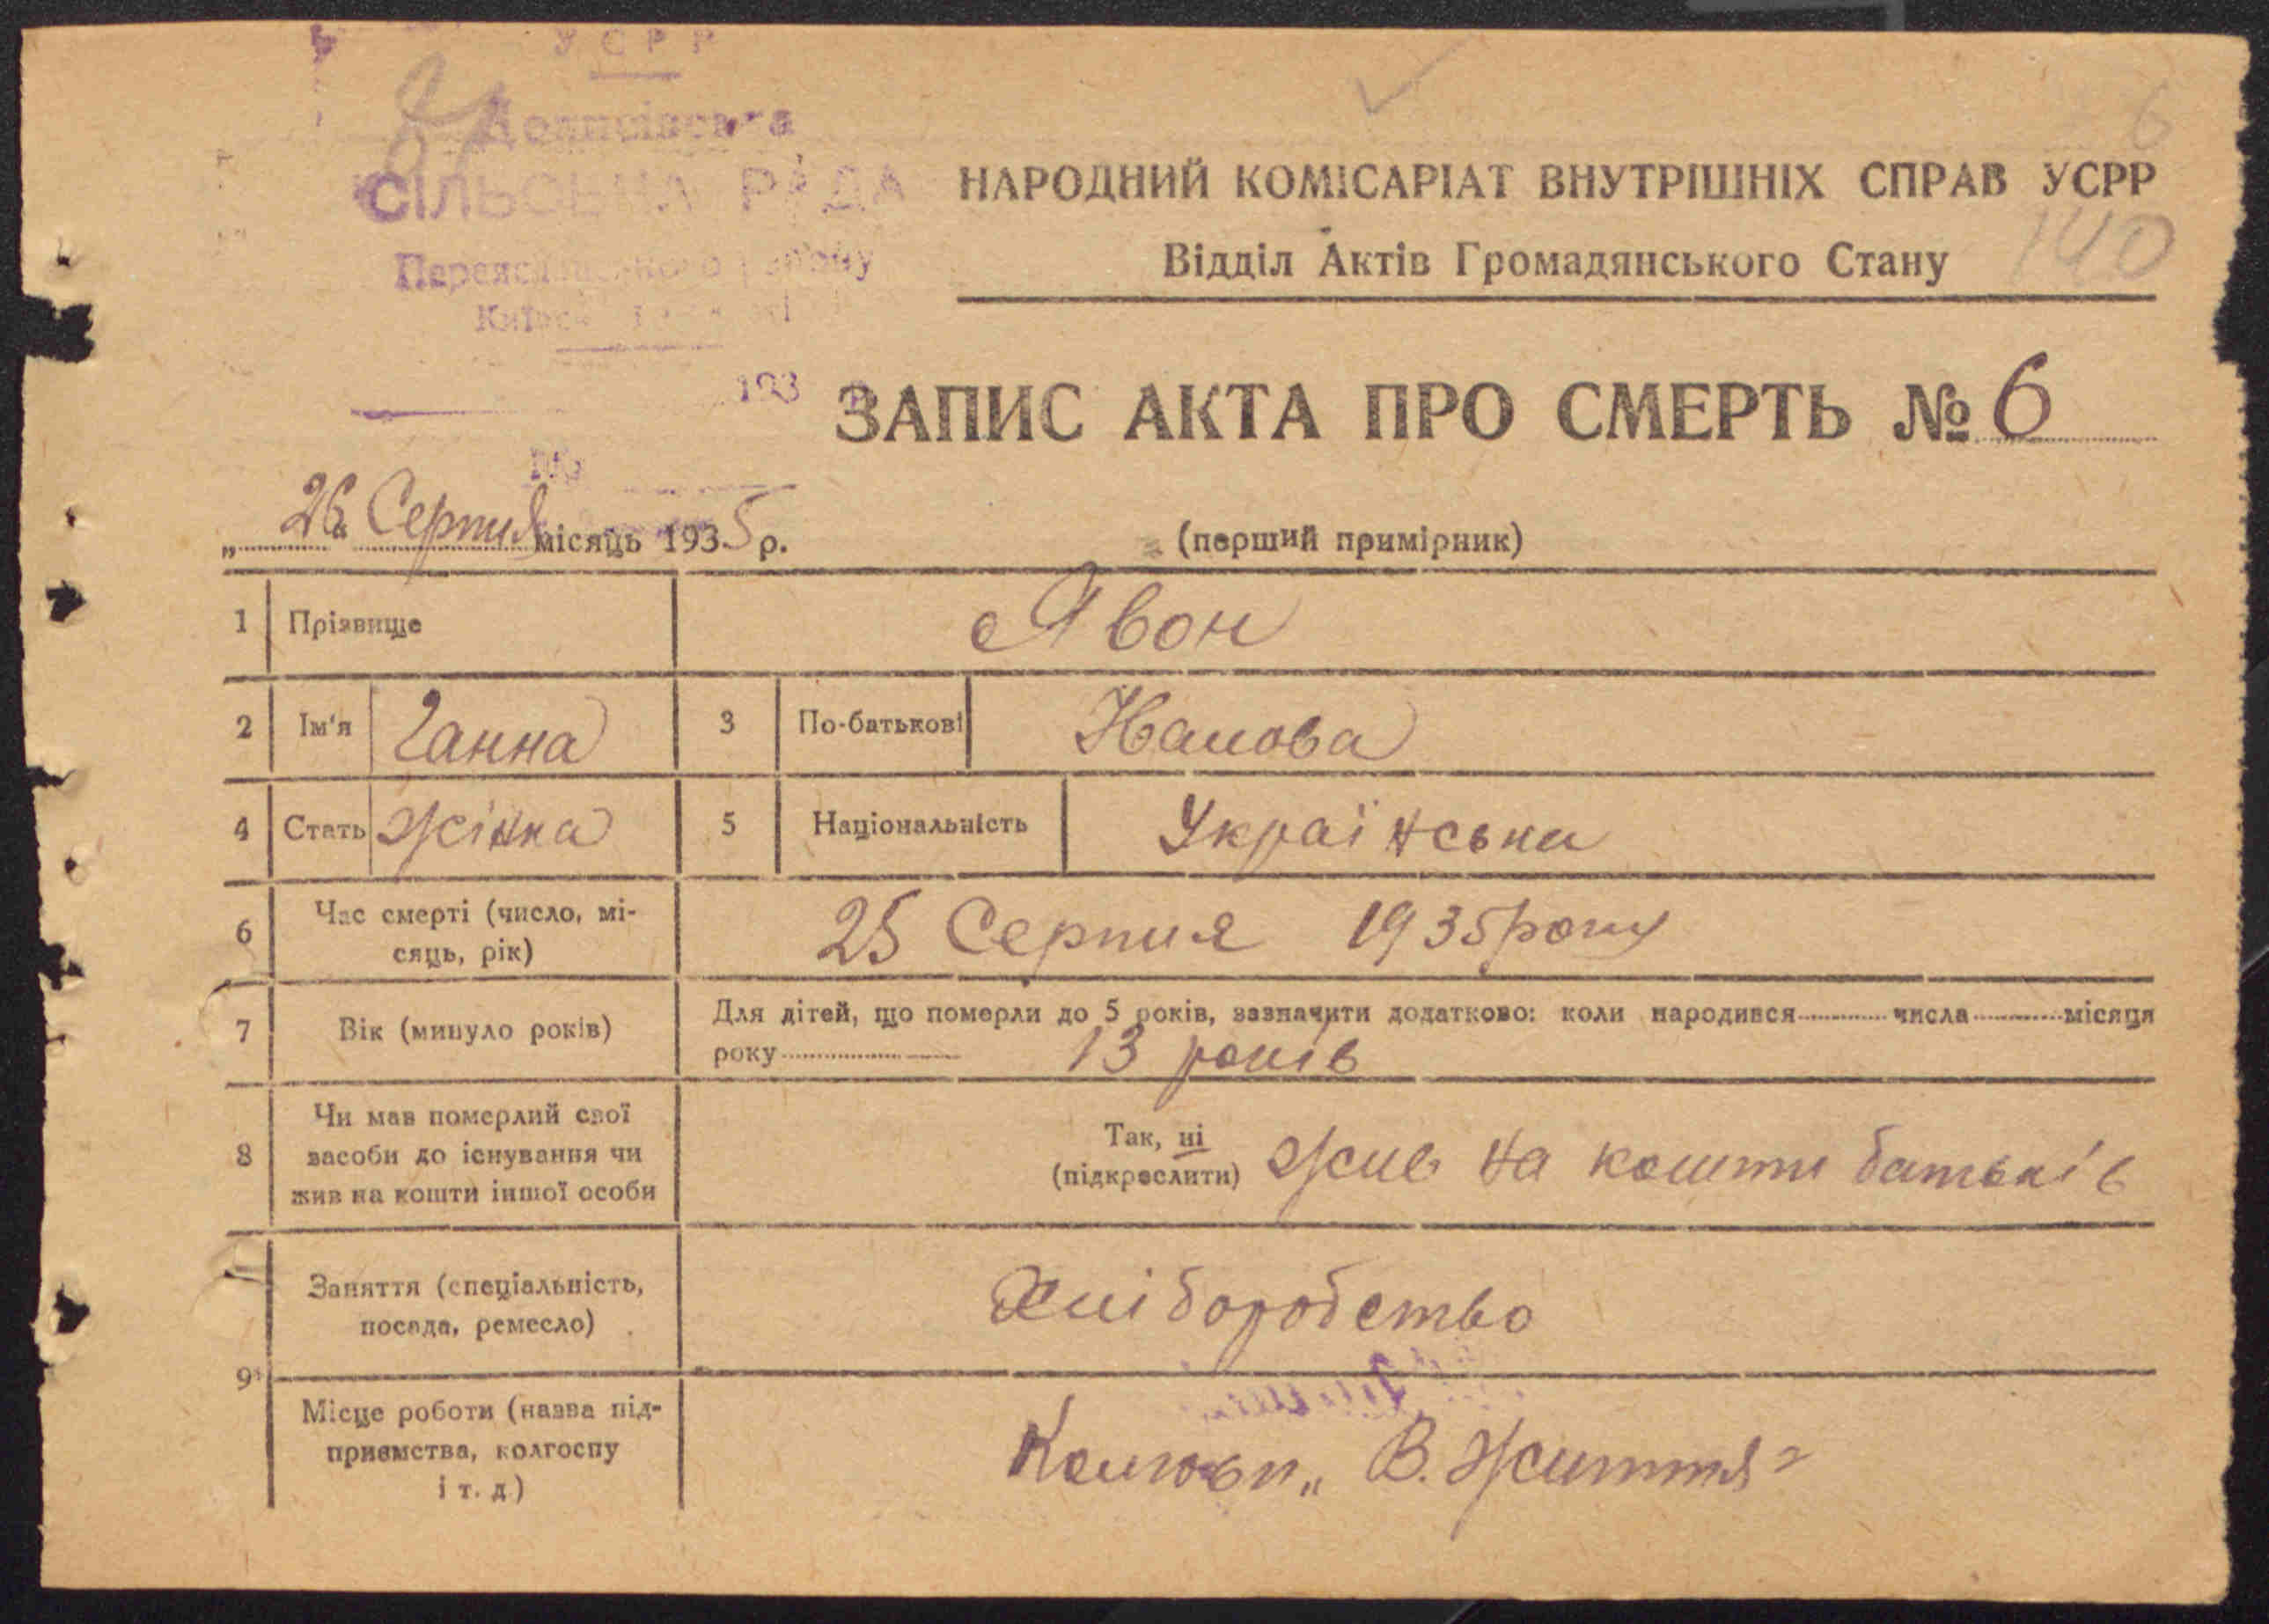 УСРР
СІЛЬСЬКА РАДА
6
НАРОДНИЙ КОМІСАРІАТ ВНУТРІШНІХ СПРАВ УСРР
140
Відділ Актів Громадянського Стану
193
ЗАПИС АКТА ПРО СМЕРТЬ № 6
„26“ Серпня місяць 1935 р. (перший примірник)
1 Прізвище Явон
2 Ім'я Ганна 3 По-батькові
4 Стать жінка 5 Національність Українська
6 Час смерті (число, мі-
сяць, рік) 25 Серпня 1935 року
7 Вік (минуло років) Для дітей, що померли до 5 років, зазначити додатково: коли народився числа місяця
року 13 років
8 Чи мав померлий свої
засоби до існування чи
жив на кошти іншої особи
Так, ні
(підкреслити) жив на кошти батьків
9
Заняття (спеціальність,
посада, ремесло) Хліборобство
Місце роботи (назва під-
приємства, колгоспу
і т. д)
„В. Життя"